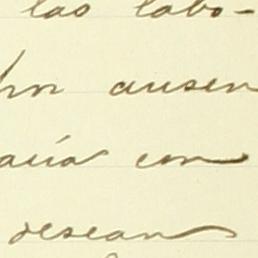 las labo-
por ausen
aría con
desean